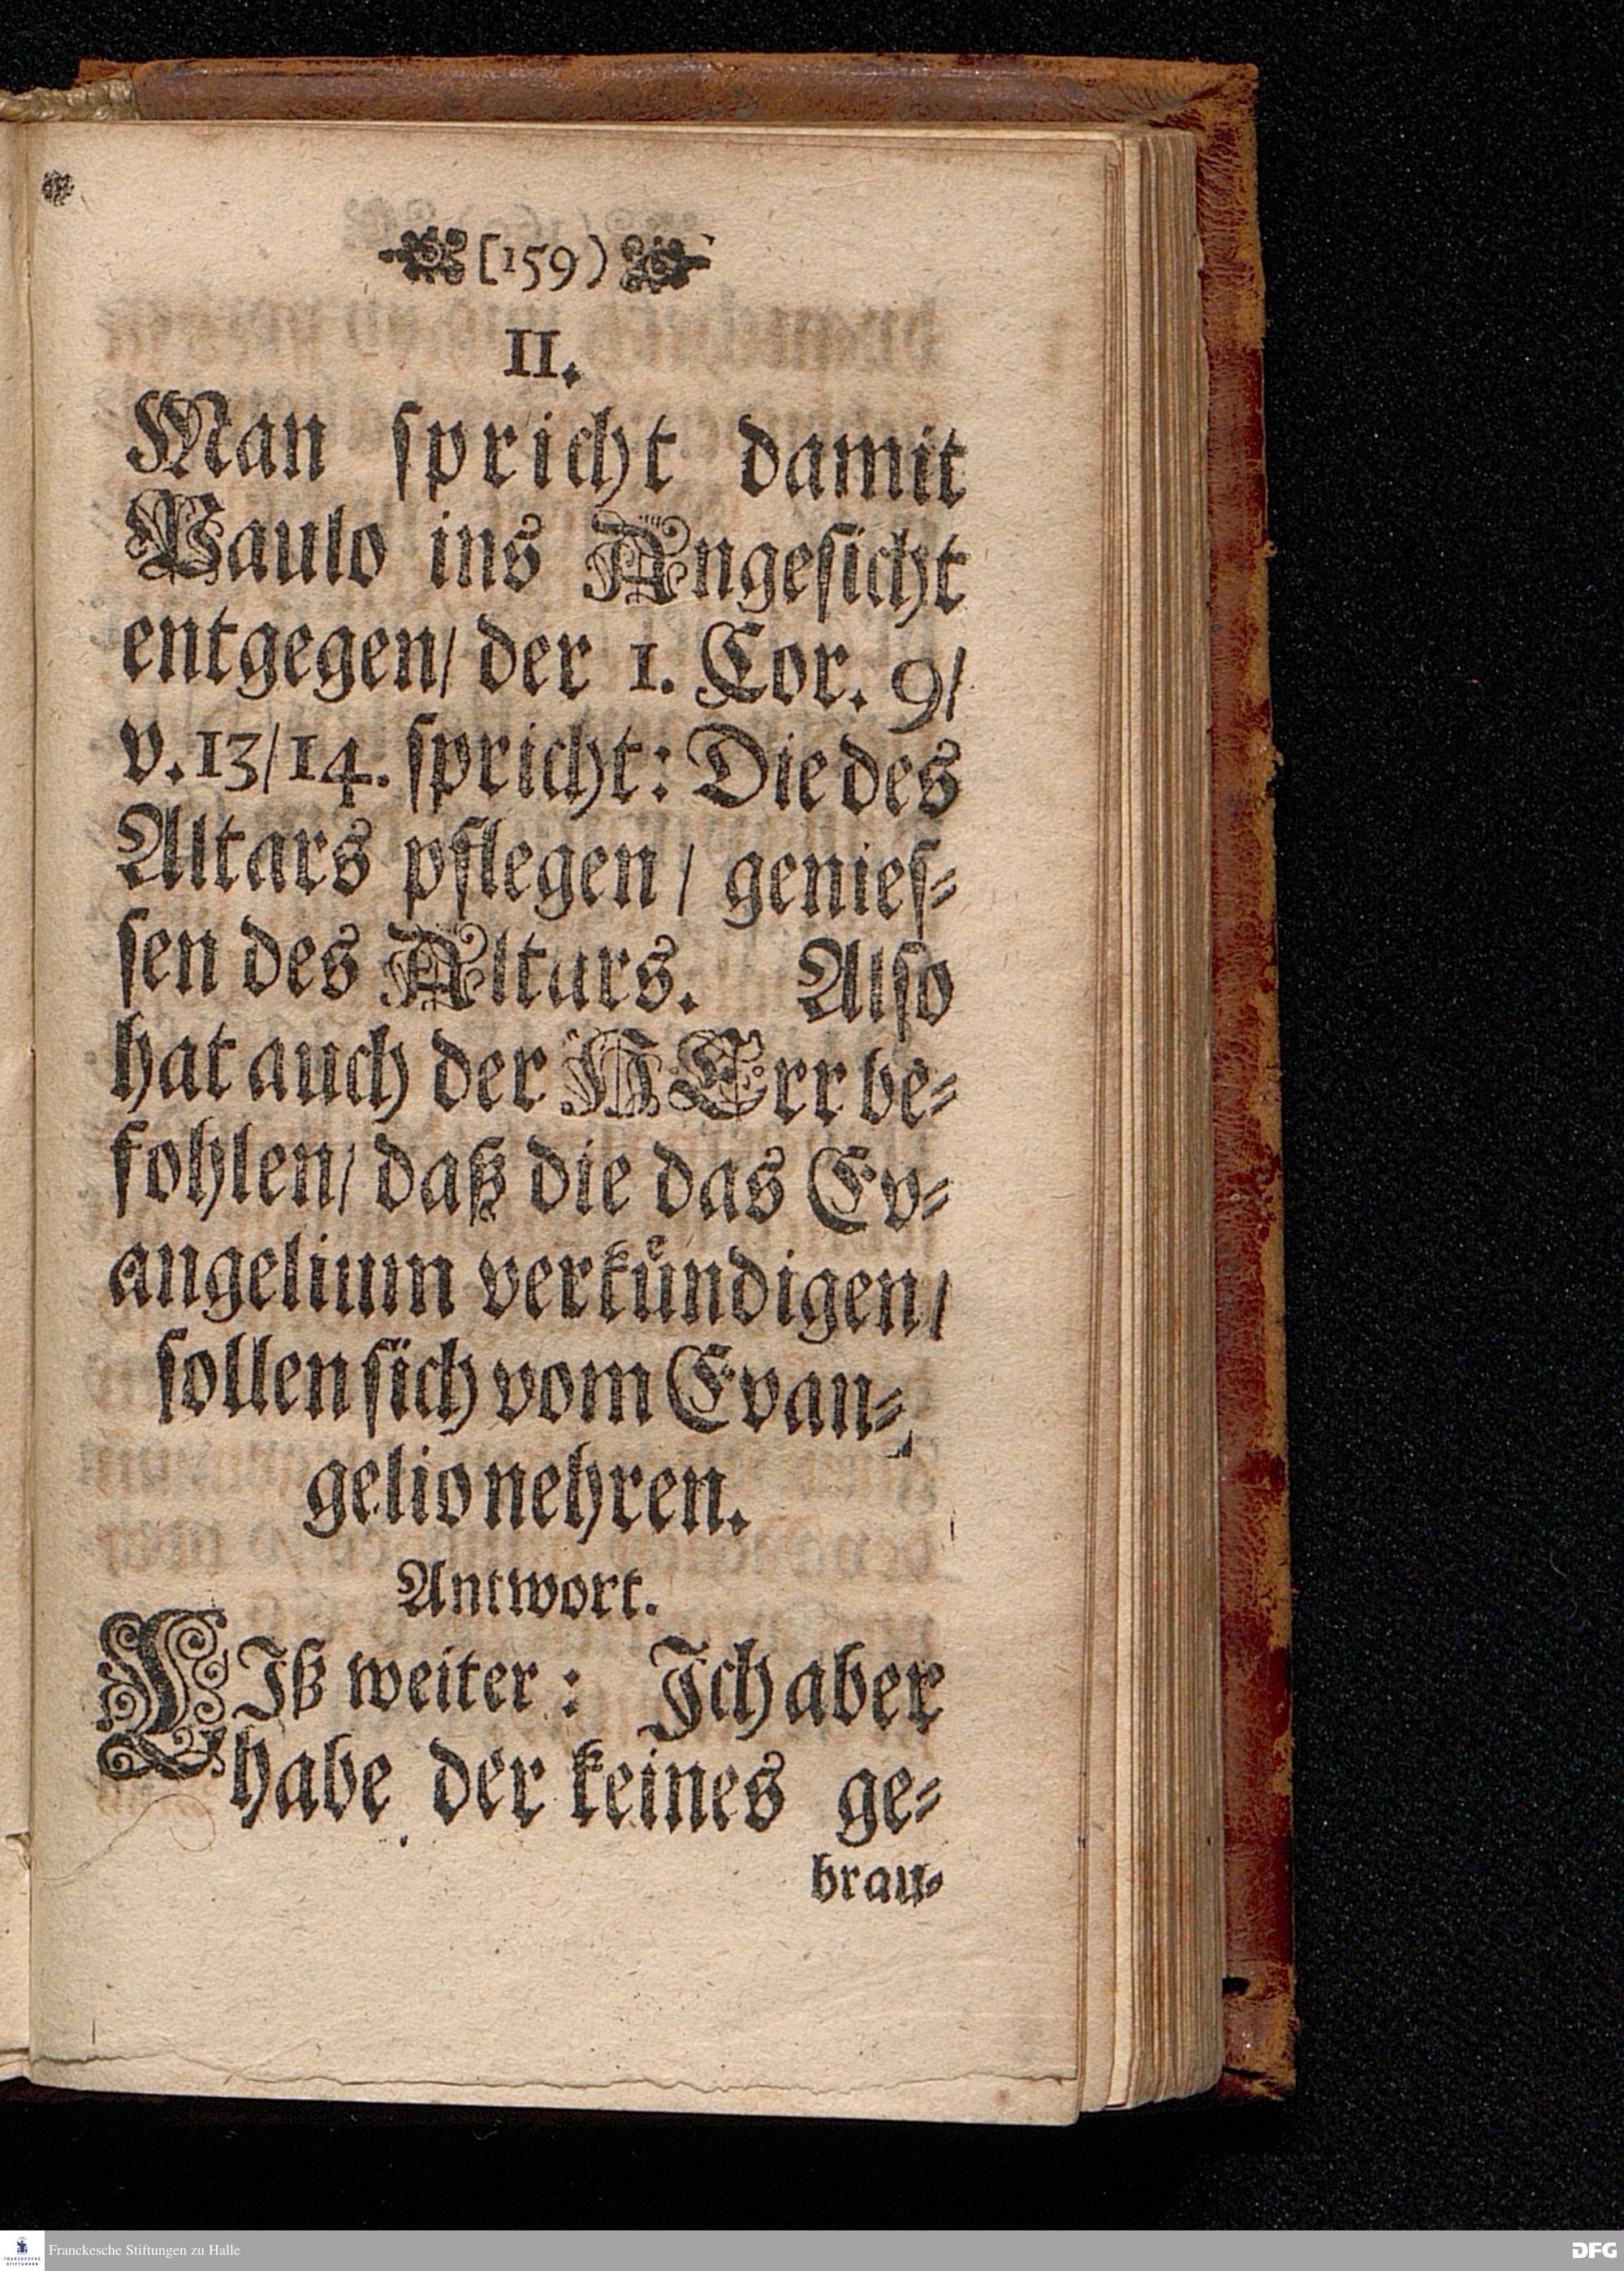 [159)
II.
Man spricht damit
Paulo ins Angesicht
entgegen/ der 1. Cor. 9/
v. 13/14. spricht: Die des
Altars pflegen / genies-
sen des Altars. Also
hat auch der HErr be-
fohlen/ daß die das Ev-
angelium verkuͤndigen/
sollen sich vom Evan-
gelio nehren.
Antwort.
LIß weiter: Ich aber
habe der keines ge-
brau-
Franckesche Stiftungen zu Halle
DFG